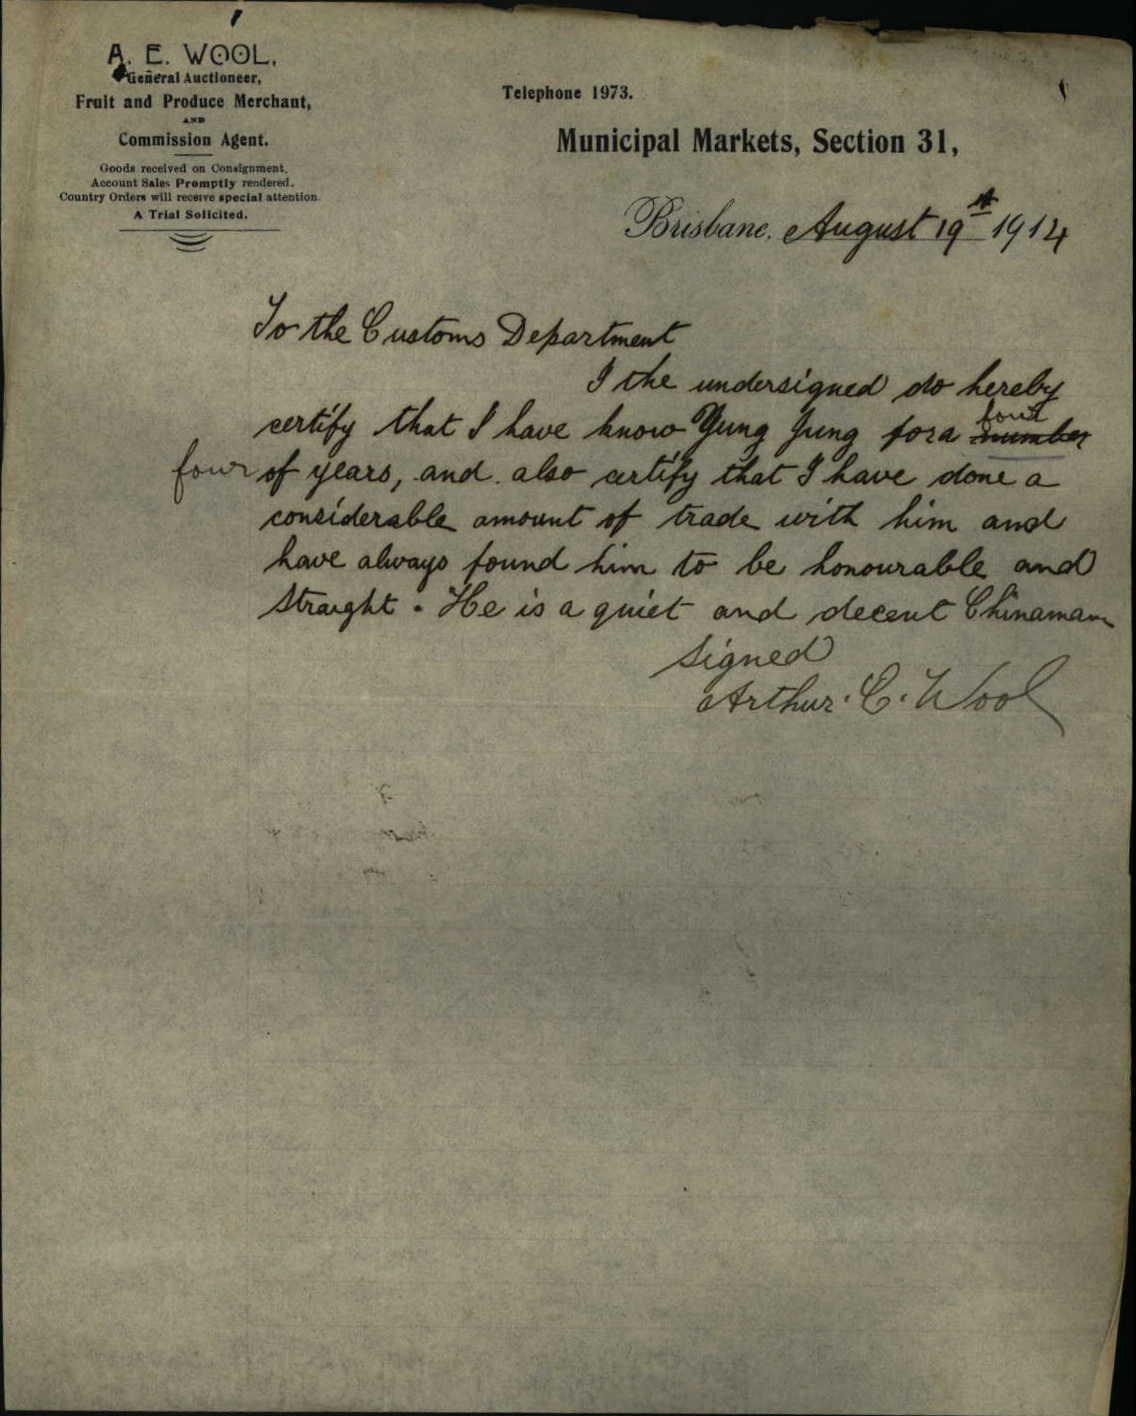 A. E. WOOL,
General Auctioneer,
Fruit and Produce Merchant,
AND
Commission Agent.
Goods received on Consignment.
Account Sales Promptly rendered.
Country Orders will receive special attention.
A Trial Solicited.
Telephone 1973.
Municipal Markets, Section 31,
Brisbane, August 19th 1914
To the Customs Department
I the undersigned do hereby
four
certify that I have know Yung Jung for a number
four of years, and also certify that I have done a
considerable amount of trade with him and
have always found him to be honourable and
straight. He is a quiet and decent Chinaman
Signed
Arthur. E. Wool